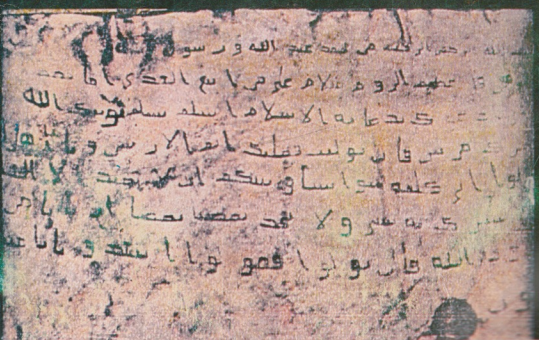 الله الرحمن الرحيم من محمد عبد الله و رسو
عظيم الروم سلام على من اتبع الهدى اما بعد
بدعاية الاسلام اسلم تسلم يوتك الله
مرتين فان توليت فعليك اثم الار يسين و يا اهل
تعالوا الى كلمة سوا بيننا و بينكم ان لا نعبد الا الله
به شيا و لا يتخذ بعضنا بعضا اربابا من
دون الله فان تولوا فقولوا اشهدوا بانا مسلمو
ن